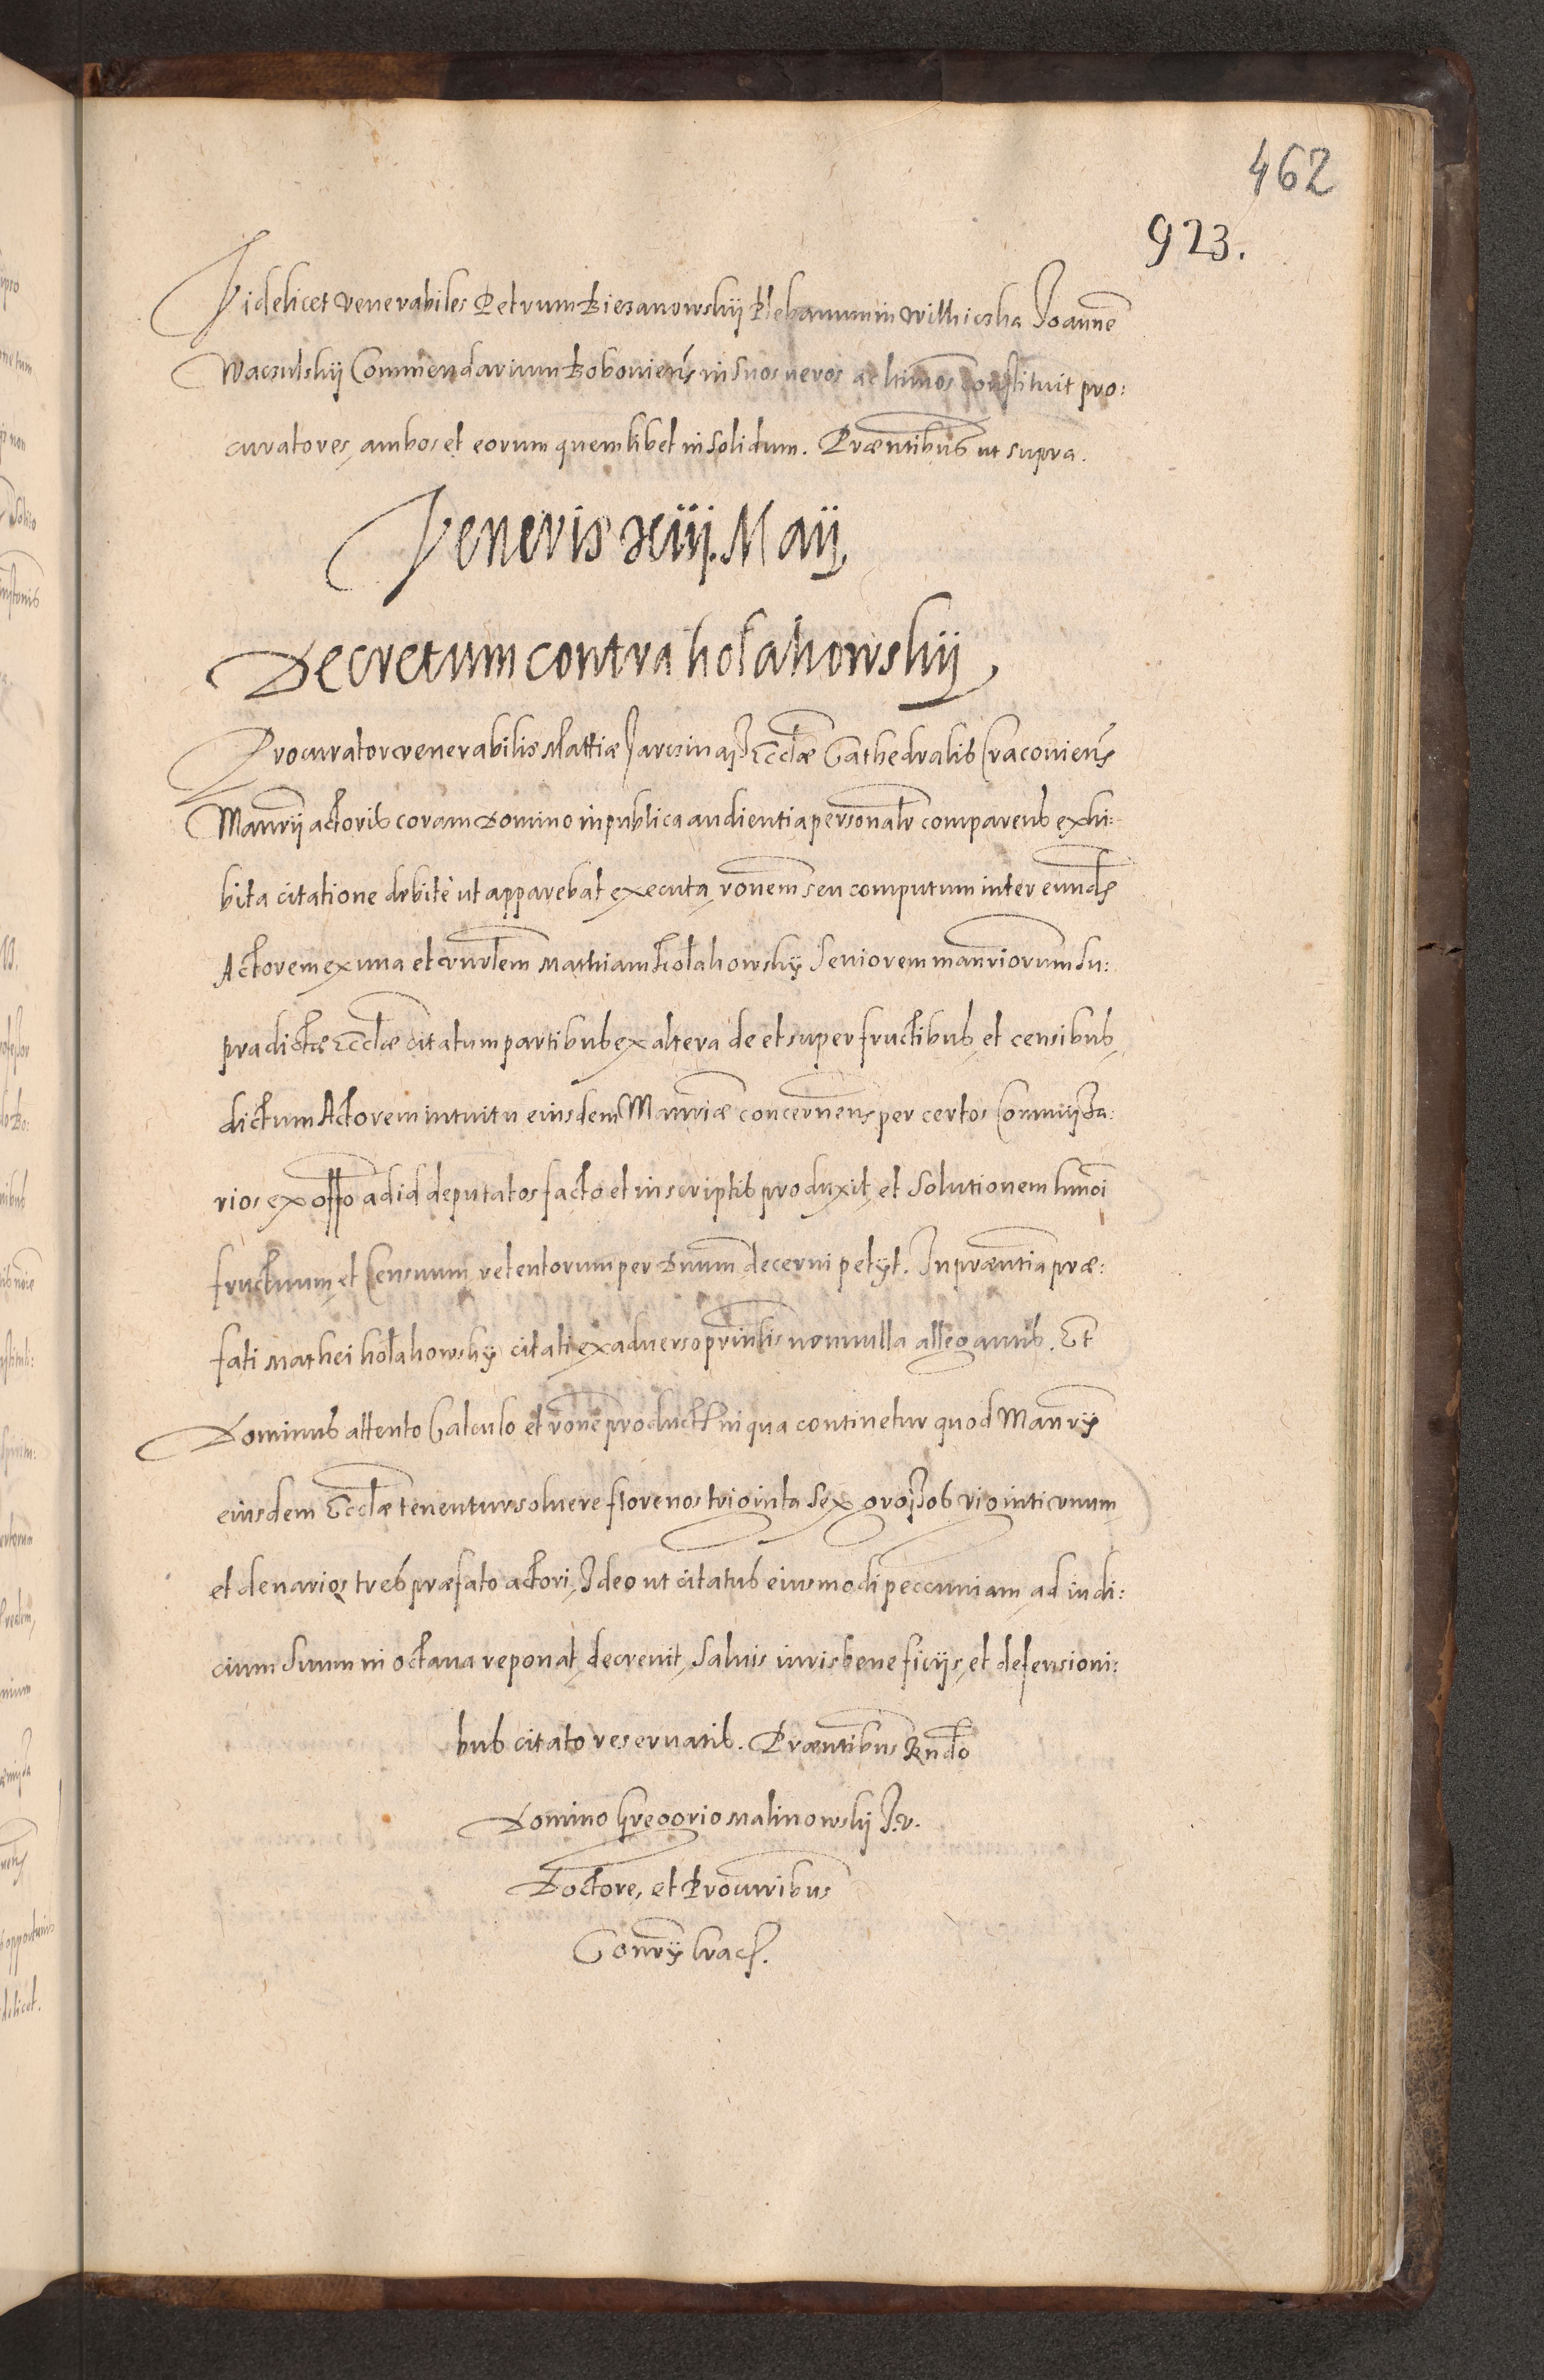 462
923.
Videlicet venerabiles Petrum Biezanowskij Plebanum in Vilkiczka Joannē
Waczulskij Commendarium Boboviens̄ in suos veros ac l̄timos constituit pro:
curatores, ambos et eorum quemlibet in solidum. Præn̄tibus ut supra.
Veneris xiij. Maij
Decretum contra kołakowskij
Procurator venerabilis Mattiæ Jarczina Eccl̄æ Cathedralis Cracoviens̄
Man̄rij actoris coram Domino in publica audientia personal̄r comparens exhi:
bita citatione debite ut apparebat executa, rōnem seu computum inter eund̄
Actorem ex una et vn̄rl̄em Mathiam kołakowskij Seniorem man̄riorum su:
pradictæ Eccl̄æ citatum partibus ex altera de et super fructibus, et censibus,
dictum Actorem intuitu eiusdem Man̄riæ concernen̄s per certos Commissa:
rios ex off̄o ad id deputatos facto et in scriptis produxit, et solutionem hmōi
fructuum, et Censuum retentorum per Dnum̄ decerni petijt. In præn̄tia præ:
fati Mathei kołakowskij citati ex adverso prin̄lis nonnulla allegan̄tis. Et
Dominus attento Calculo et rōne product̄ in qua continetur quod Man̄rij
eiusdem Eccl̄æ tenentur solvere florenos triginta sex grossos viginti vnum,
et denarios tres præfato actori, Ideo ut citatus eiusmodi peccuniam ad iudi:
cium Suum in octava reponat, decrevit, Salvis iuris beneficijs, et defensioni:
bus citato reservatis. Præn̄tibus Rn̄do
Domino Gregorio Malinowskij J. v.
Doctore, et Procur̄ribus
Con̄rij Crac̄.